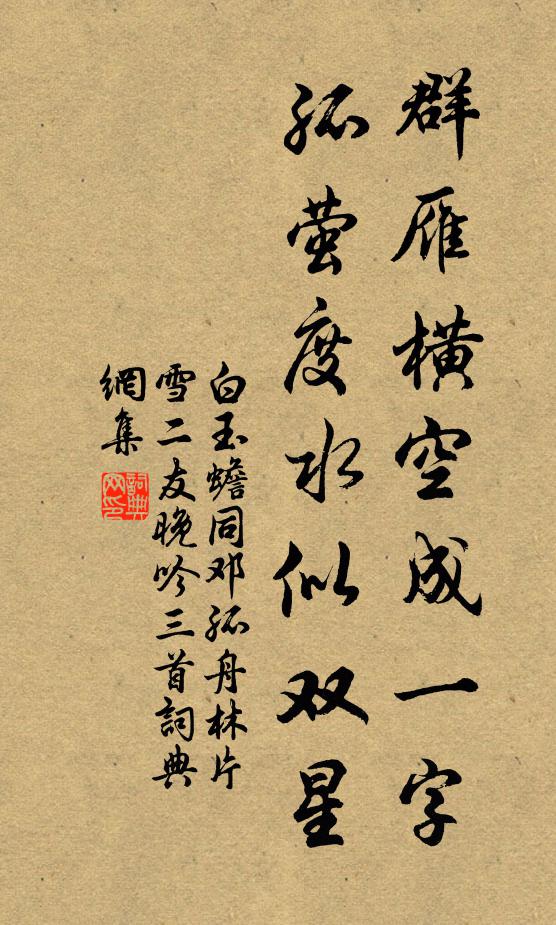 群雁横空成一字
孤萤度水似双星
白玉蟾同邓孤舟林片
雪二友晚吟三首詞典
網集
詞典
网印